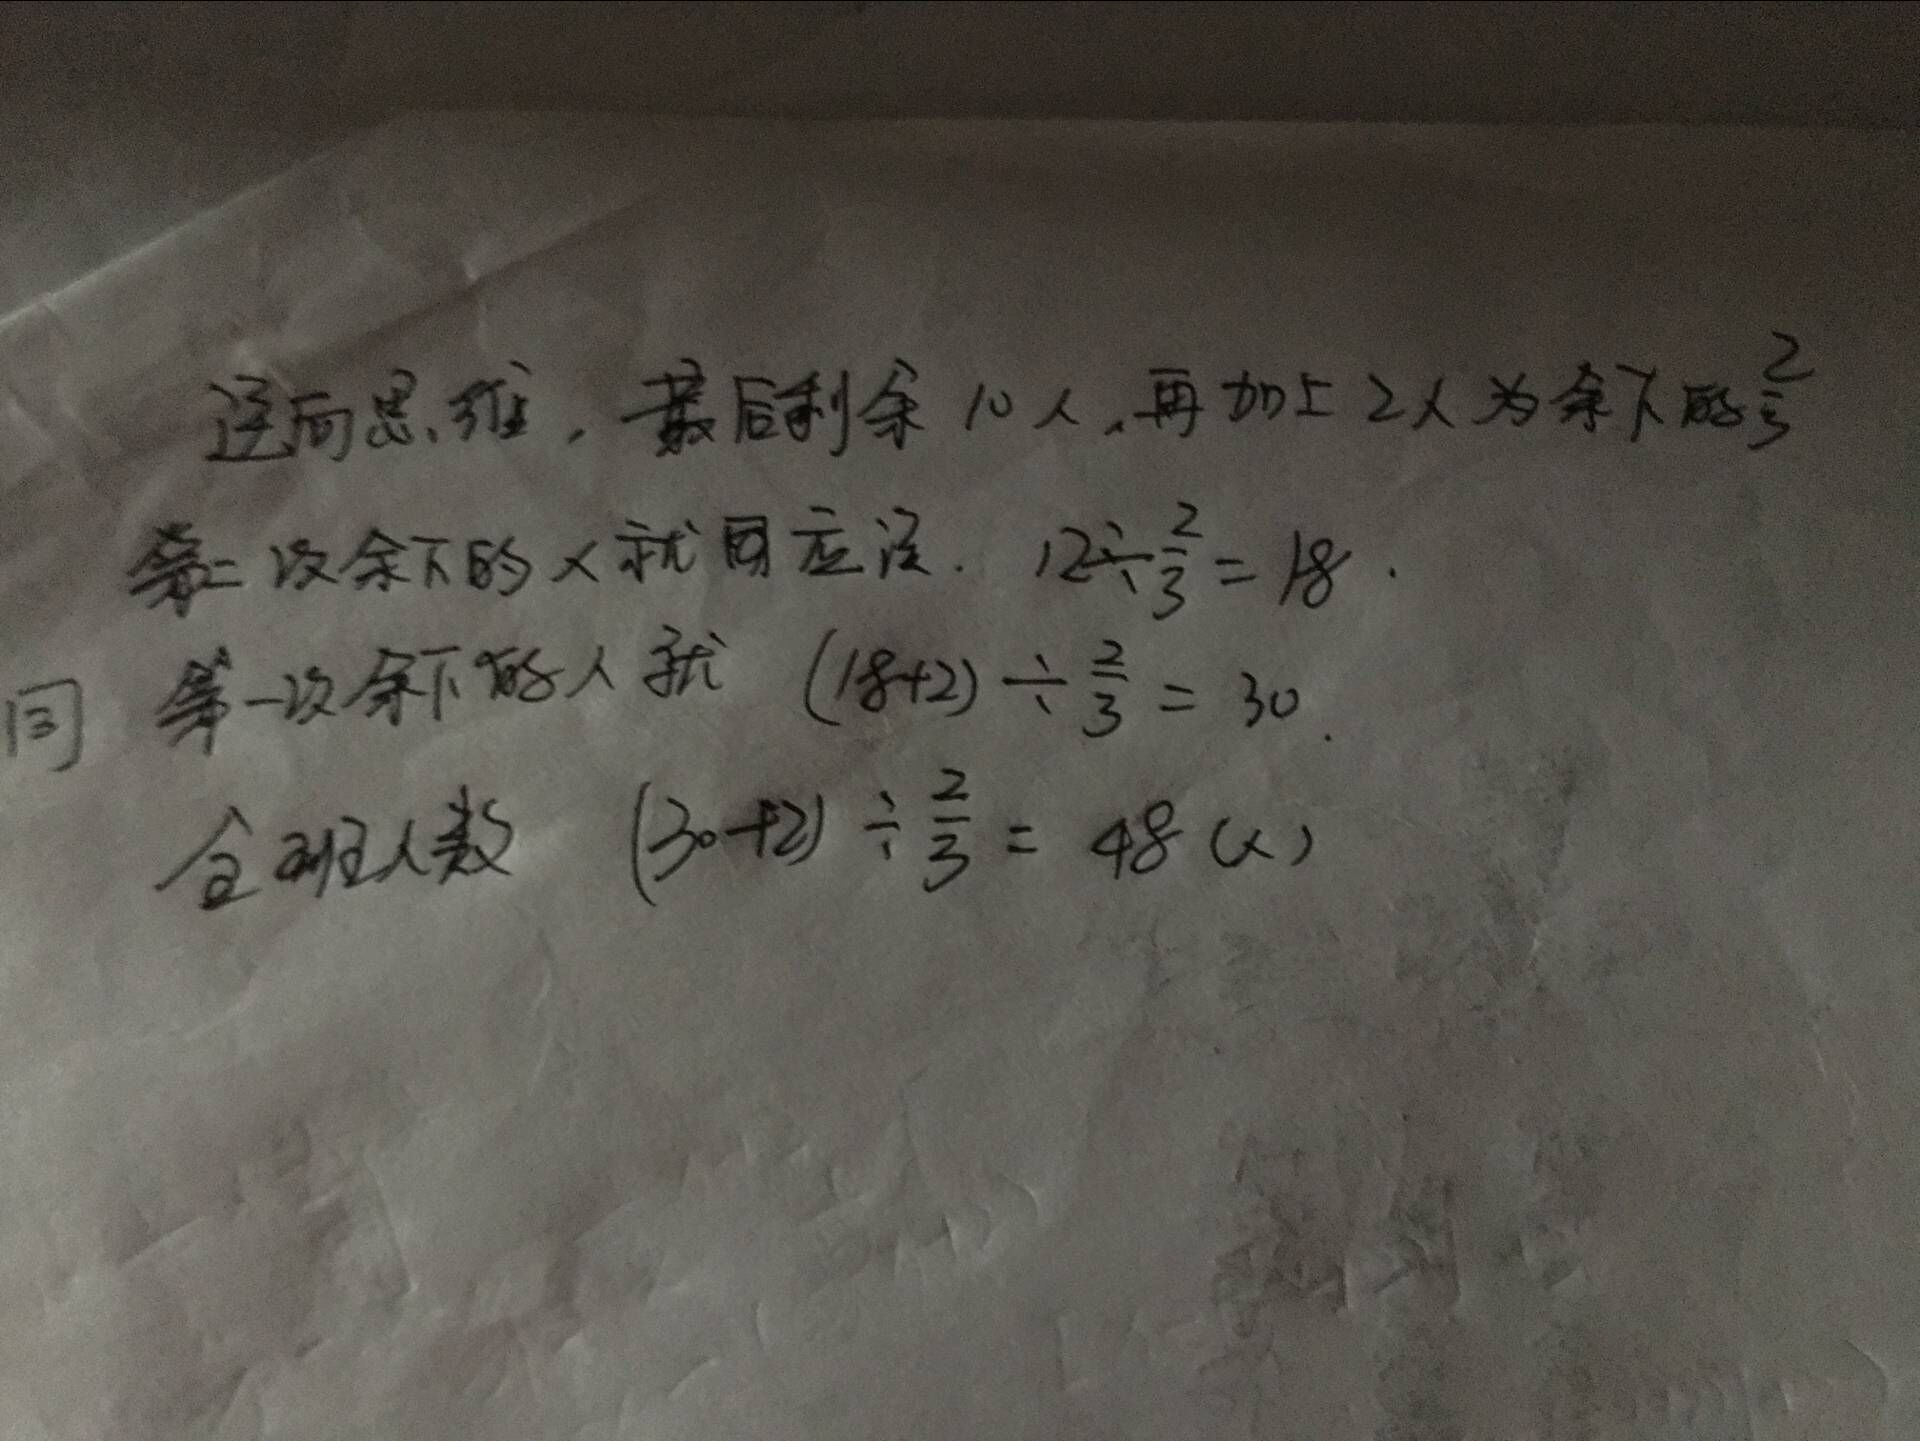 逆向思维，最后剩余10人，再加上2人为余下的2/3
第二次余下的人就回应该. 12÷2/3=18.
同 第一次余下的人就 (18+2)÷2/3=30.
全班人数 (30+2)÷2/3=48(人)